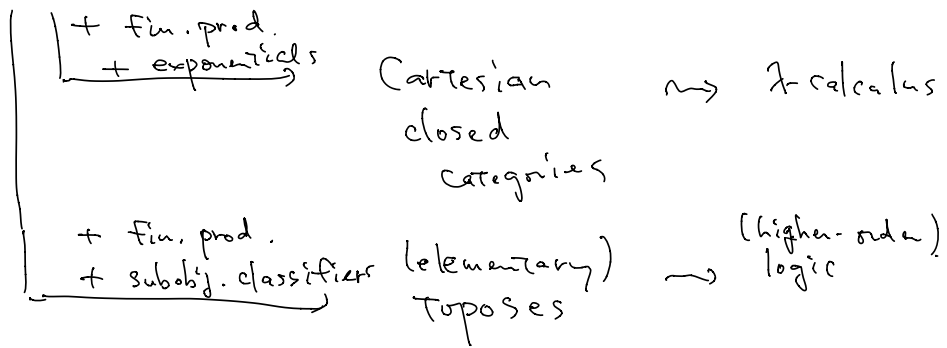 + fin. prod.
+ exponentials
Cartesian closed categories
⇝ λ-calculus
+ fin. prod.
+ subobj. classifiers
(elementary) toposes
⇝ (higher-order) logic